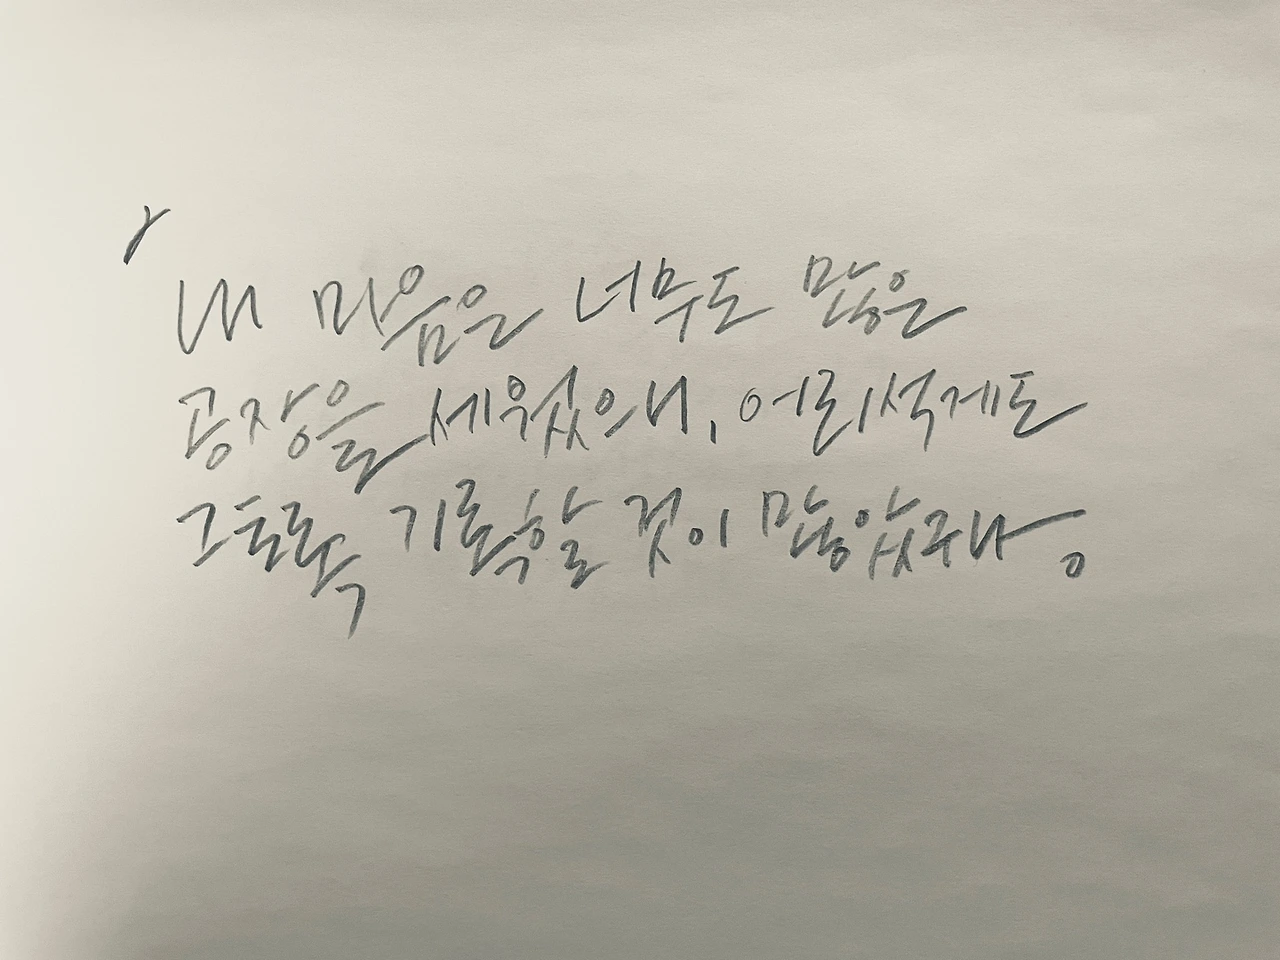 내 마음은 너무도 많은
공장을 세웠으니, 어리석게도
그토록 기록할 것이 많았구나。